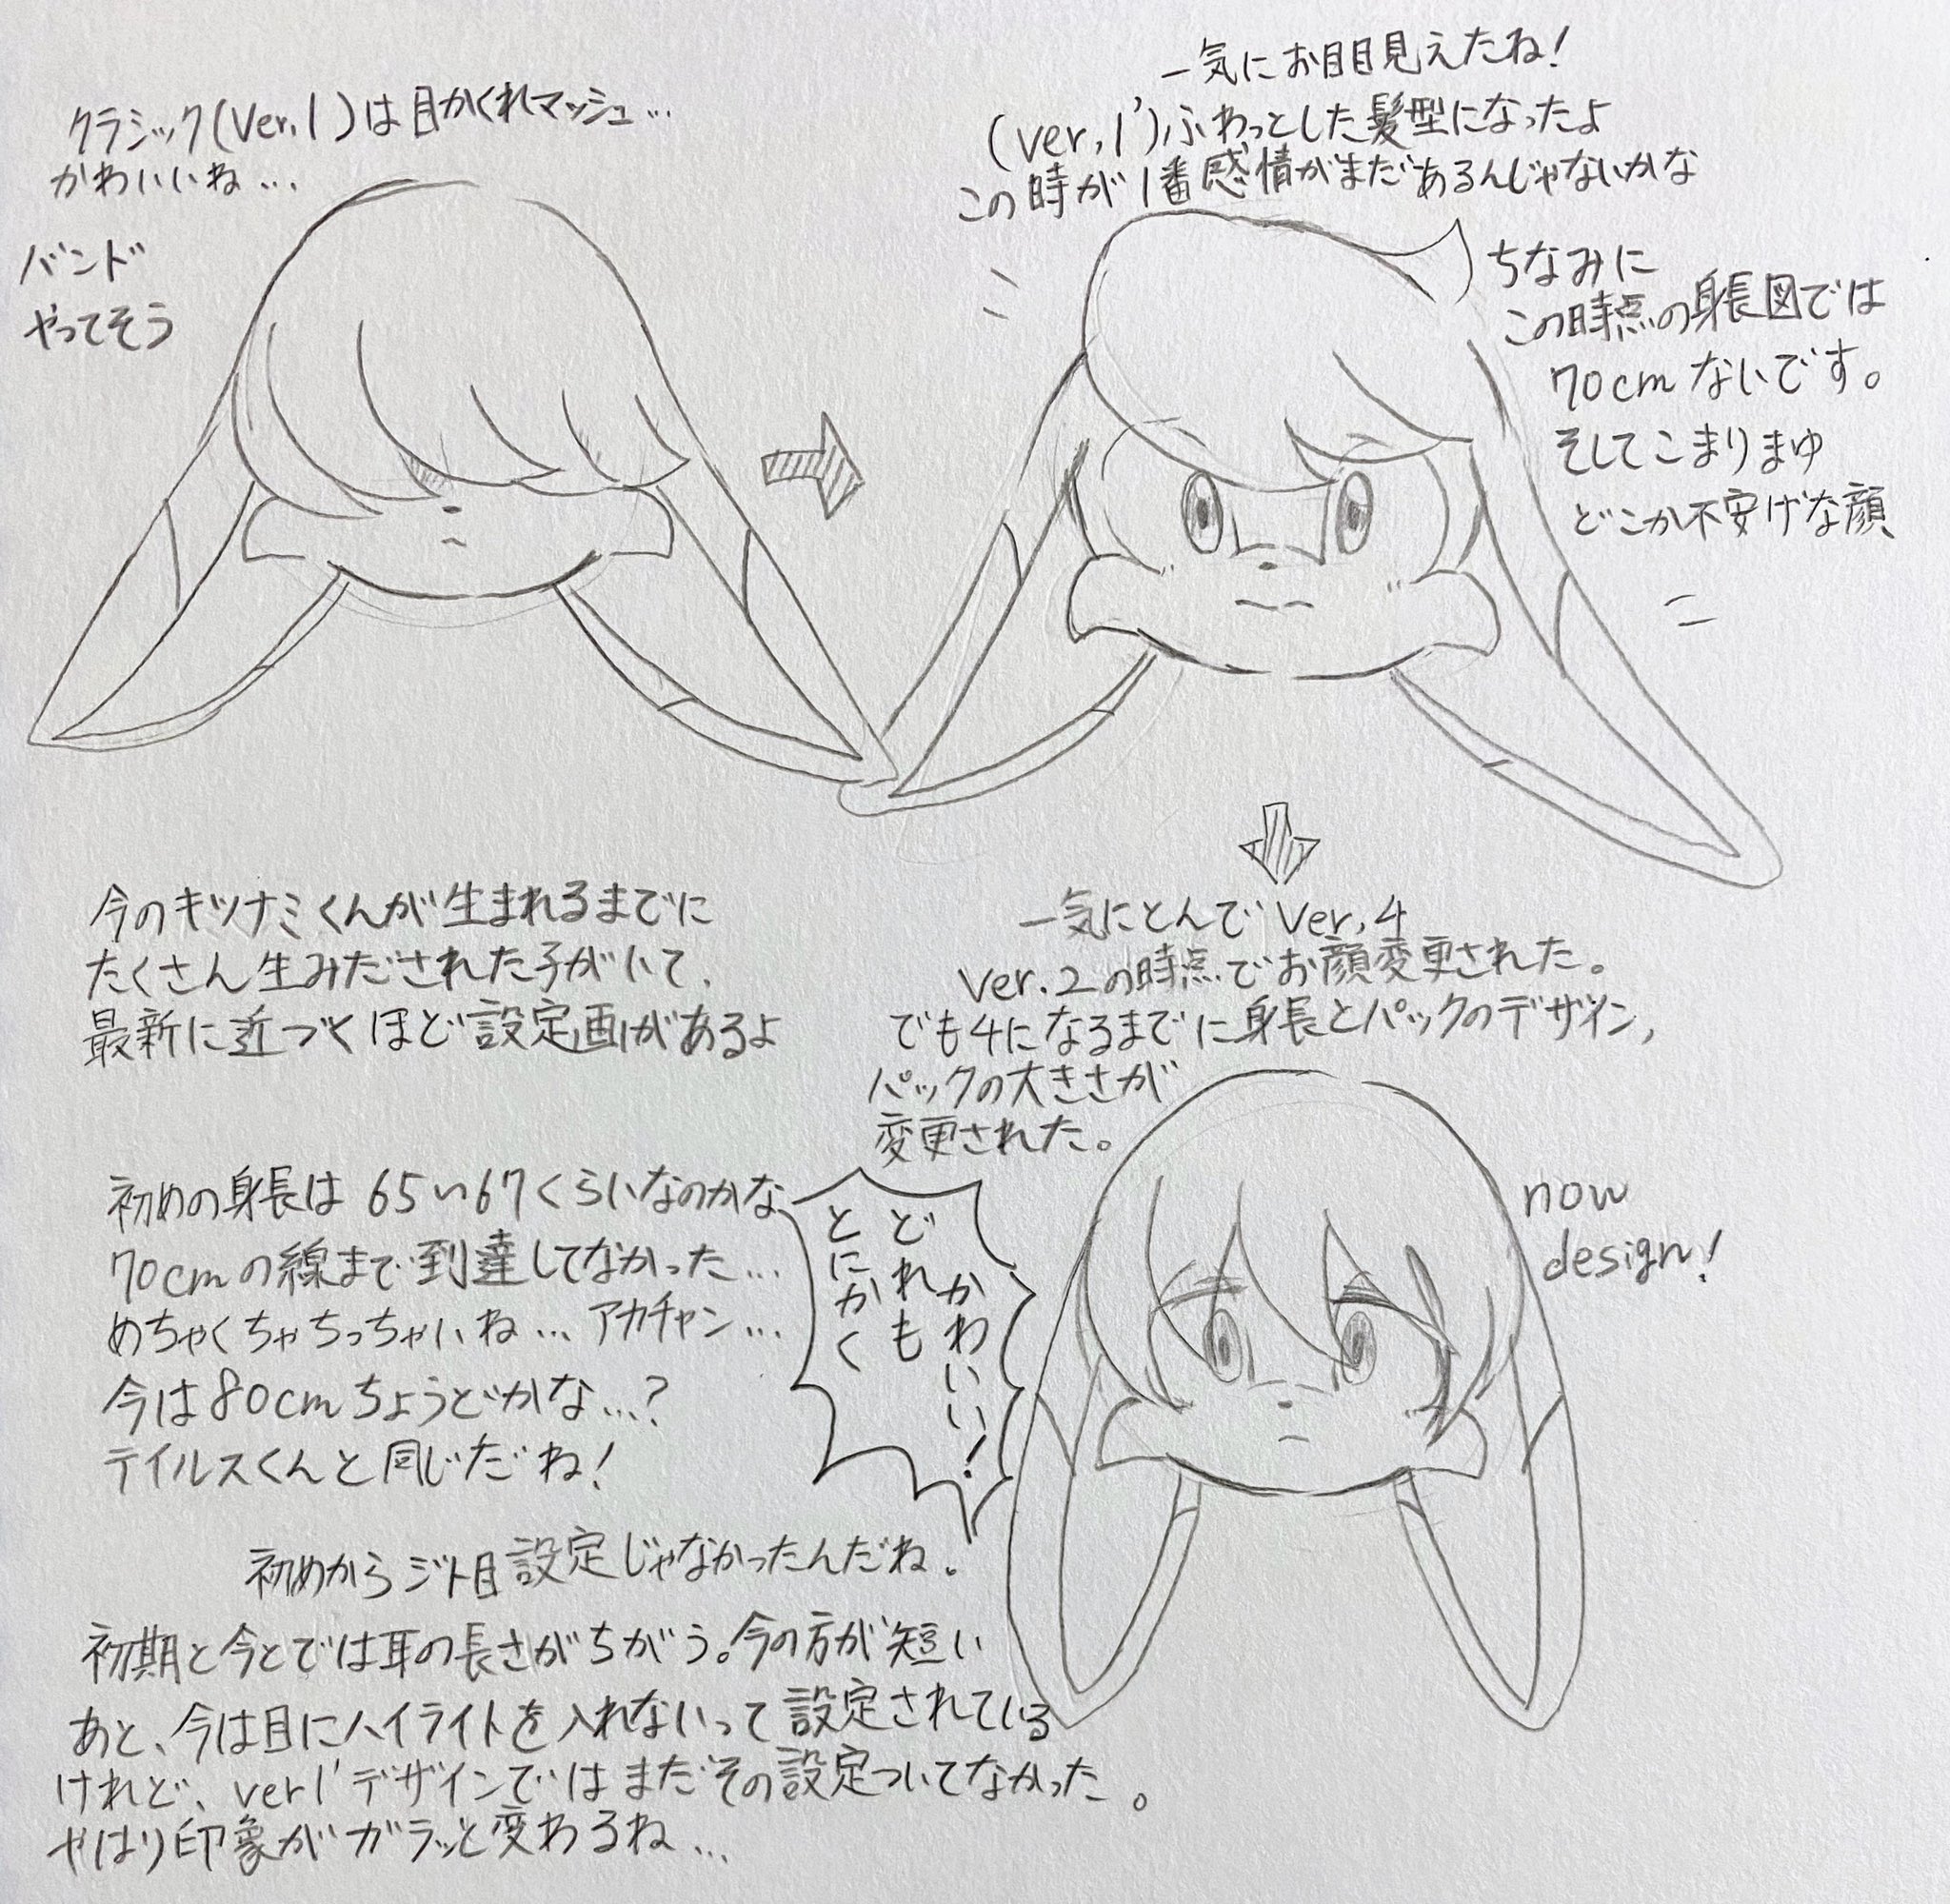 クラシック(Ver.1)は目かくれマッシュ…
かわいいね…
バンド
やってそう
一気にお目目見えたね!
(ver,1')ふわっとした髪型になったよ
この時が1番感情がまだあるんじゃないかな
ちなみに
この時点の身長図では
70cmないです。
そしてこまりまゆ
どこか不安げな顔
今のキツナミくんが生まれるまでに
たくさん生みだされた子がいて、
最新に近づくほど設定画があるよ
一気にとんでVer,4
Ver.2の時点でお顔変更された。
でも4になるまでに身長とパックのデザイン,
パックの大きさが
変更された。
初めの身長は65~67くらいなのかな
70cmの線まで到達してなかった…
めちゃくちゃちっちゃいね…アカチャン…
今は80cmちょうどかな…?
テイルスくんと同じだね!
とにかく
どれも
かわいい!
now
design!
初めからジト目設定じゃなかったんだね。
初期と今とでは耳の長さがちがう。今の方が短い
あと、今は目にハイライトを入れないって設定されている
けれど、ver1'デザインではまだその設定ついてなかった。
やはり印象がガラッと変わるね…